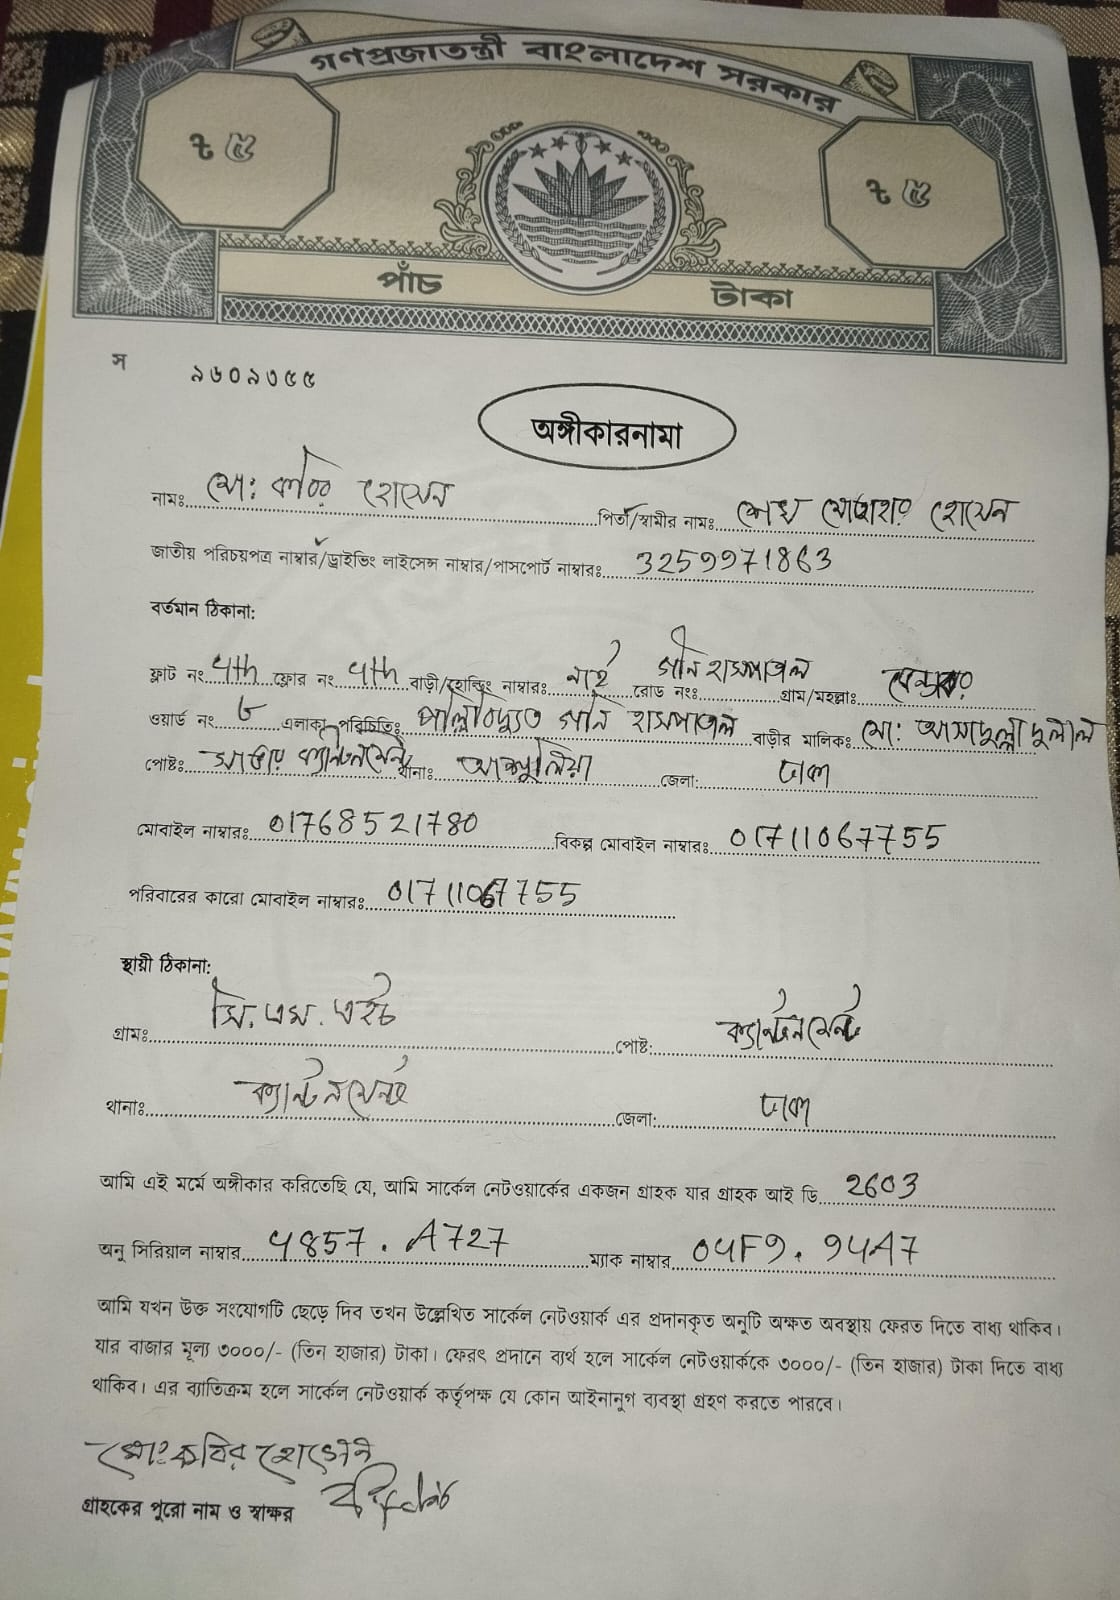 গণপ্রজাতন্ত্রী বাংলাদেশ সরকার
৳ ৫ ৳ ৫
পাঁচ টাকা
স ৯৬০৯৩৫৫
অঙ্গীকারনামা
নামঃ মো: কবির হোসেন পিতা/স্বামীর নামঃ শেখ হোসেন
জাতীয় পরিচয়পত্র নাম্বার/ড্রাইভিং লাইসেন্স নাম্বার/পাসপোর্ট নাম্বারঃ 3259971863
বর্তমান ঠিকানা:
ফ্লাট নং 4th ফ্লোর নং 4th বাড়ী/হোল্ডিং নাম্বারঃ নাই রোড নংঃ গনি হাসপাতাল গ্রাম/মহল্লাঃ
ওয়ার্ড নং ৬ এলাকা পরিচিতিঃ পল্লিবিদ্যুত গনি হাসপাতাল বাড়ীর মালিকঃ মো: আসাদুল্লা দুলাল
পোষ্টঃ সাভার ক্যান্টনমেন্ট থানাঃ আশুলিয়া জেলা: ঢাকা
মোবাইল নাম্বারঃ 01768521780 বিকল্প মোবাইল নাম্বারঃ 01711067755
পরিবারের কারো মোবাইল নাম্বারঃ 01711067755
স্থায়ী ঠিকানা:
গ্রামঃ সি. এম. এইচ পোষ্ট: ক্যান্টনমেন্ট
থানাঃ ক্যান্টনমেন্ট জেলা: ঢাকা
আমি এই মর্মে অঙ্গীকার করিতেছি যে, আমি সার্কেল নেটওয়ার্কের একজন গ্রাহক যার গ্রাহক আই ডি 2603
অনু সিরিয়াল নাম্বার 4857. A727 ম্যাক নাম্বার 04F9. 94A7
আমি যখন উক্ত সংযোগটি ছেড়ে দিব তখন উল্লেখিত সার্কেল নেটওয়ার্ক এর প্রদানকৃত অনুটি অক্ষত অবস্থায় ফেরত দিতে বাধ্য থাকিব।
যার বাজার মূল্য ৩০০০/- (তিন হাজার) টাকা। ফেরৎ প্রদানে ব্যর্থ হলে সার্কেল নেটওয়ার্ককে ৩০০০/- (তিন হাজার) টাকা দিতে বাধ্য
থাকিব। এর ব্যাতিক্রম হলে সার্কেল নেটওয়ার্ক কর্তৃপক্ষ যে কোন আইনানুগ ব্যবস্থা গ্রহণ করতে পারবে।
মোঃ কবির হোসেন
গ্রাহকের পুরো নাম ও স্বাক্ষর